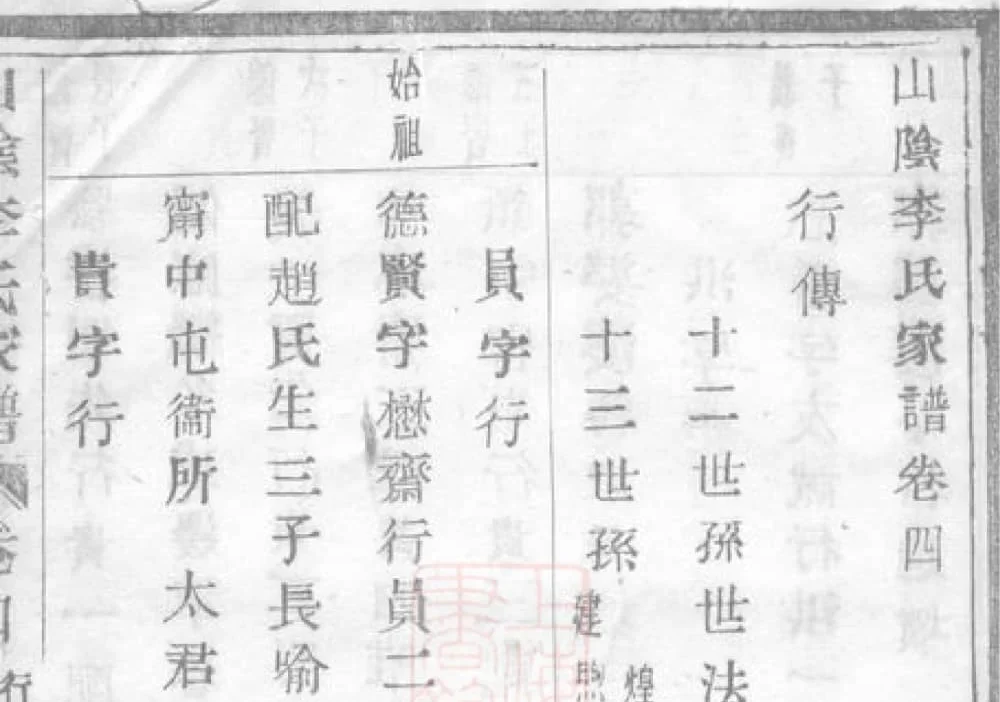 山陰李氏家譜卷四
行傳
十二世孫世法
十三世孫建煌
員字行
始祖
德賢字懋齋行員二
配趙氏生三子長喻
甯中屯衛所太君
貴字行